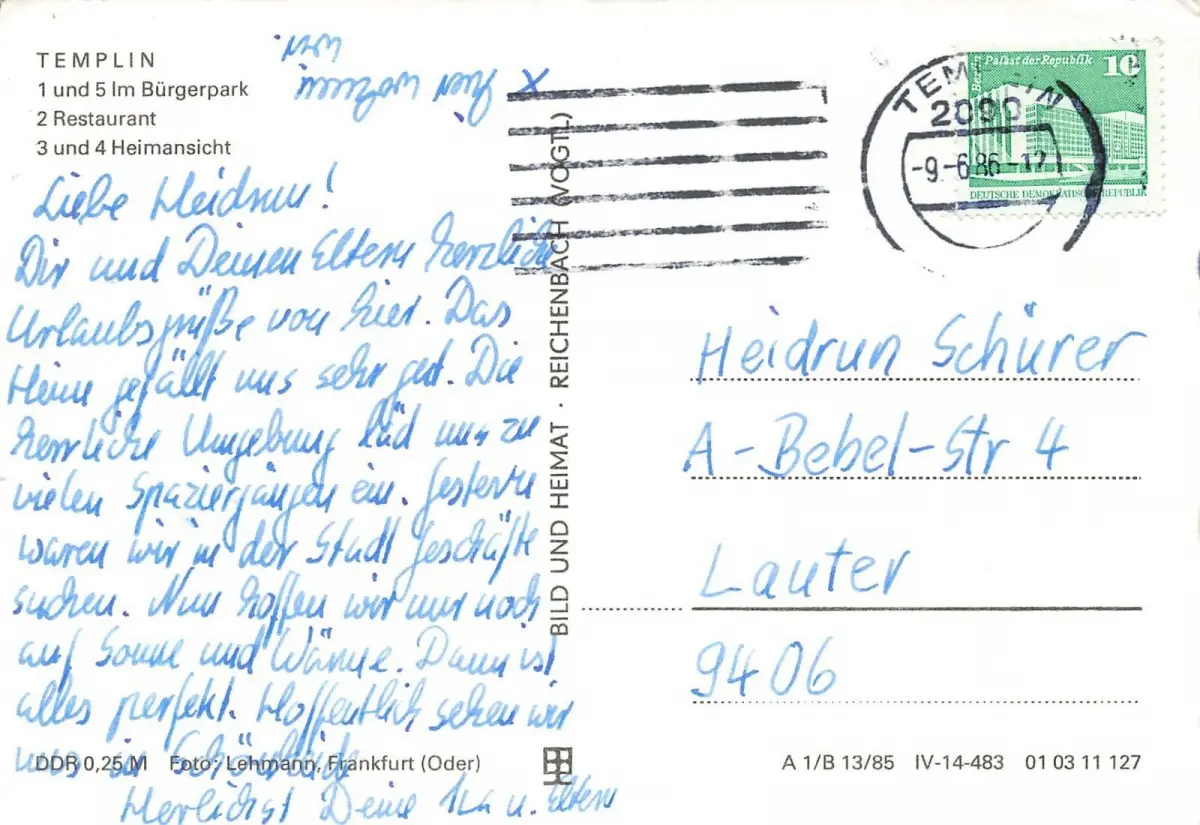 TEMPLIN
1 und 5 Im Bürgerpark
2 Restaurant
3 und 4 Heimansicht
Liebe Heidrun!
Dir und Deinen Eltern herzliche
Urlaubsgrüße von hier. Das
Heim gefällt uns sehr gut. Die
herrliche Umgebung läd uns zu
vielen Spaziergängen ein. Gestern
waren wir in der Stadt Geschäfte
suchen. Nun hoffen wir nur noch
auf Sonne und Wärme. Dann ist
alles perfekt. Hoffentlich sehen wir
uns in Schönheide
Herlichst Deine u. Eltern
X hier wohnen
wir
DDR 0,25 M Foto: Lehmann, Frankfurt (Oder)
BILD UND HEIMAT · REICHENBACH (VOGTL)
TEMPLIN
2090
-9.-6.86-12
Berlin Palast der Republik 10
DEUTSCHE DEMOKRATISCHE REPUBLIK
Heidrun Schürer
A-Bebel-Str 4
Lauter
9406
A 1/B 13/85 IV-14-483 01 03 11 127